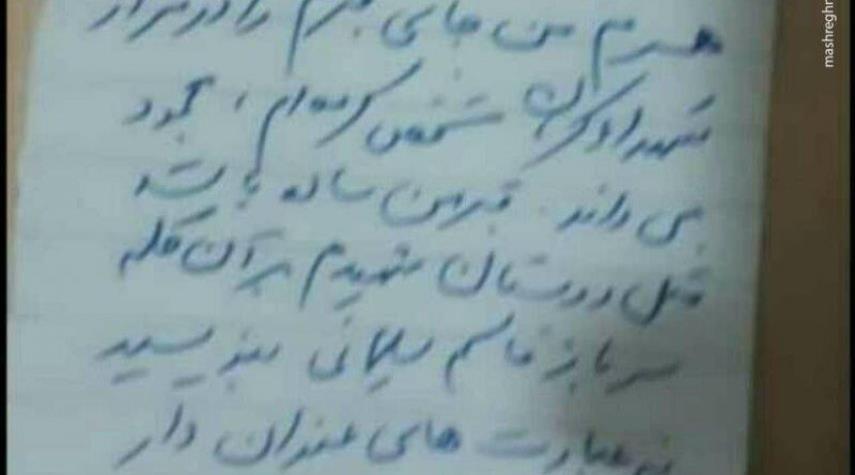 همسرم من جای قبرم را در مزار
شهداء کرمان مشخص کرده‌ام، محمود
می داند. قبر من ساده باشد
مثل دوستان شهیدم بر آن کلمه
سرباز قاسم سلیمانی بنویسید
نه عبارت های عنوان دار
mashregh